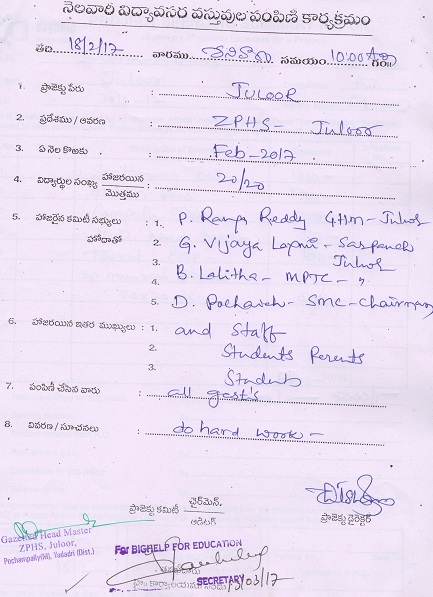 నెలవారీ విద్యావసర వస్తువుల పంపిణి కార్యక్రమం
తేది 18/2/17 వారము శనివారం సమయం 10:00 గం॥
1. ప్రాజెక్టు పేరు : JULOOR
2. ప్రదేశము / ఆవరణ : ZPHS- Juloor
3. ఏ నెల కొఱకు : Feb-2017
4. విద్యార్థుల సంఖ్య హాజరయిన మొత్తము : 20/20
5. హాజరైన కమిటీ సభ్యులు హోదాతో : 1. P. Ranga Reddy GHM- Juloor
2. G. Vijaya Laxmi - Sarpanch
3. Juloor
B. Lalitha- MPTC- "
5. D. Pochaiah- SMC-Chairman
6. హాజరయిన ఇతర ముఖ్యులు : 1. and Staff
2. Students Perents
3. Students
7. పంపిణీ చేసిన వారు : all gest's
8. వివరణ / సూచనలు : do hard work -
ప్రాజెక్టు కమిటీ ఛైర్మెన్, ఆడిటర్
ప్రాజెక్టు డైరెక్టర్
Gazetted Head Master
ZPHS, Juloor,
Pochampally(M), Yadadri (Dist.)
For BIGHELP FOR EDUCATION
SECRETARY